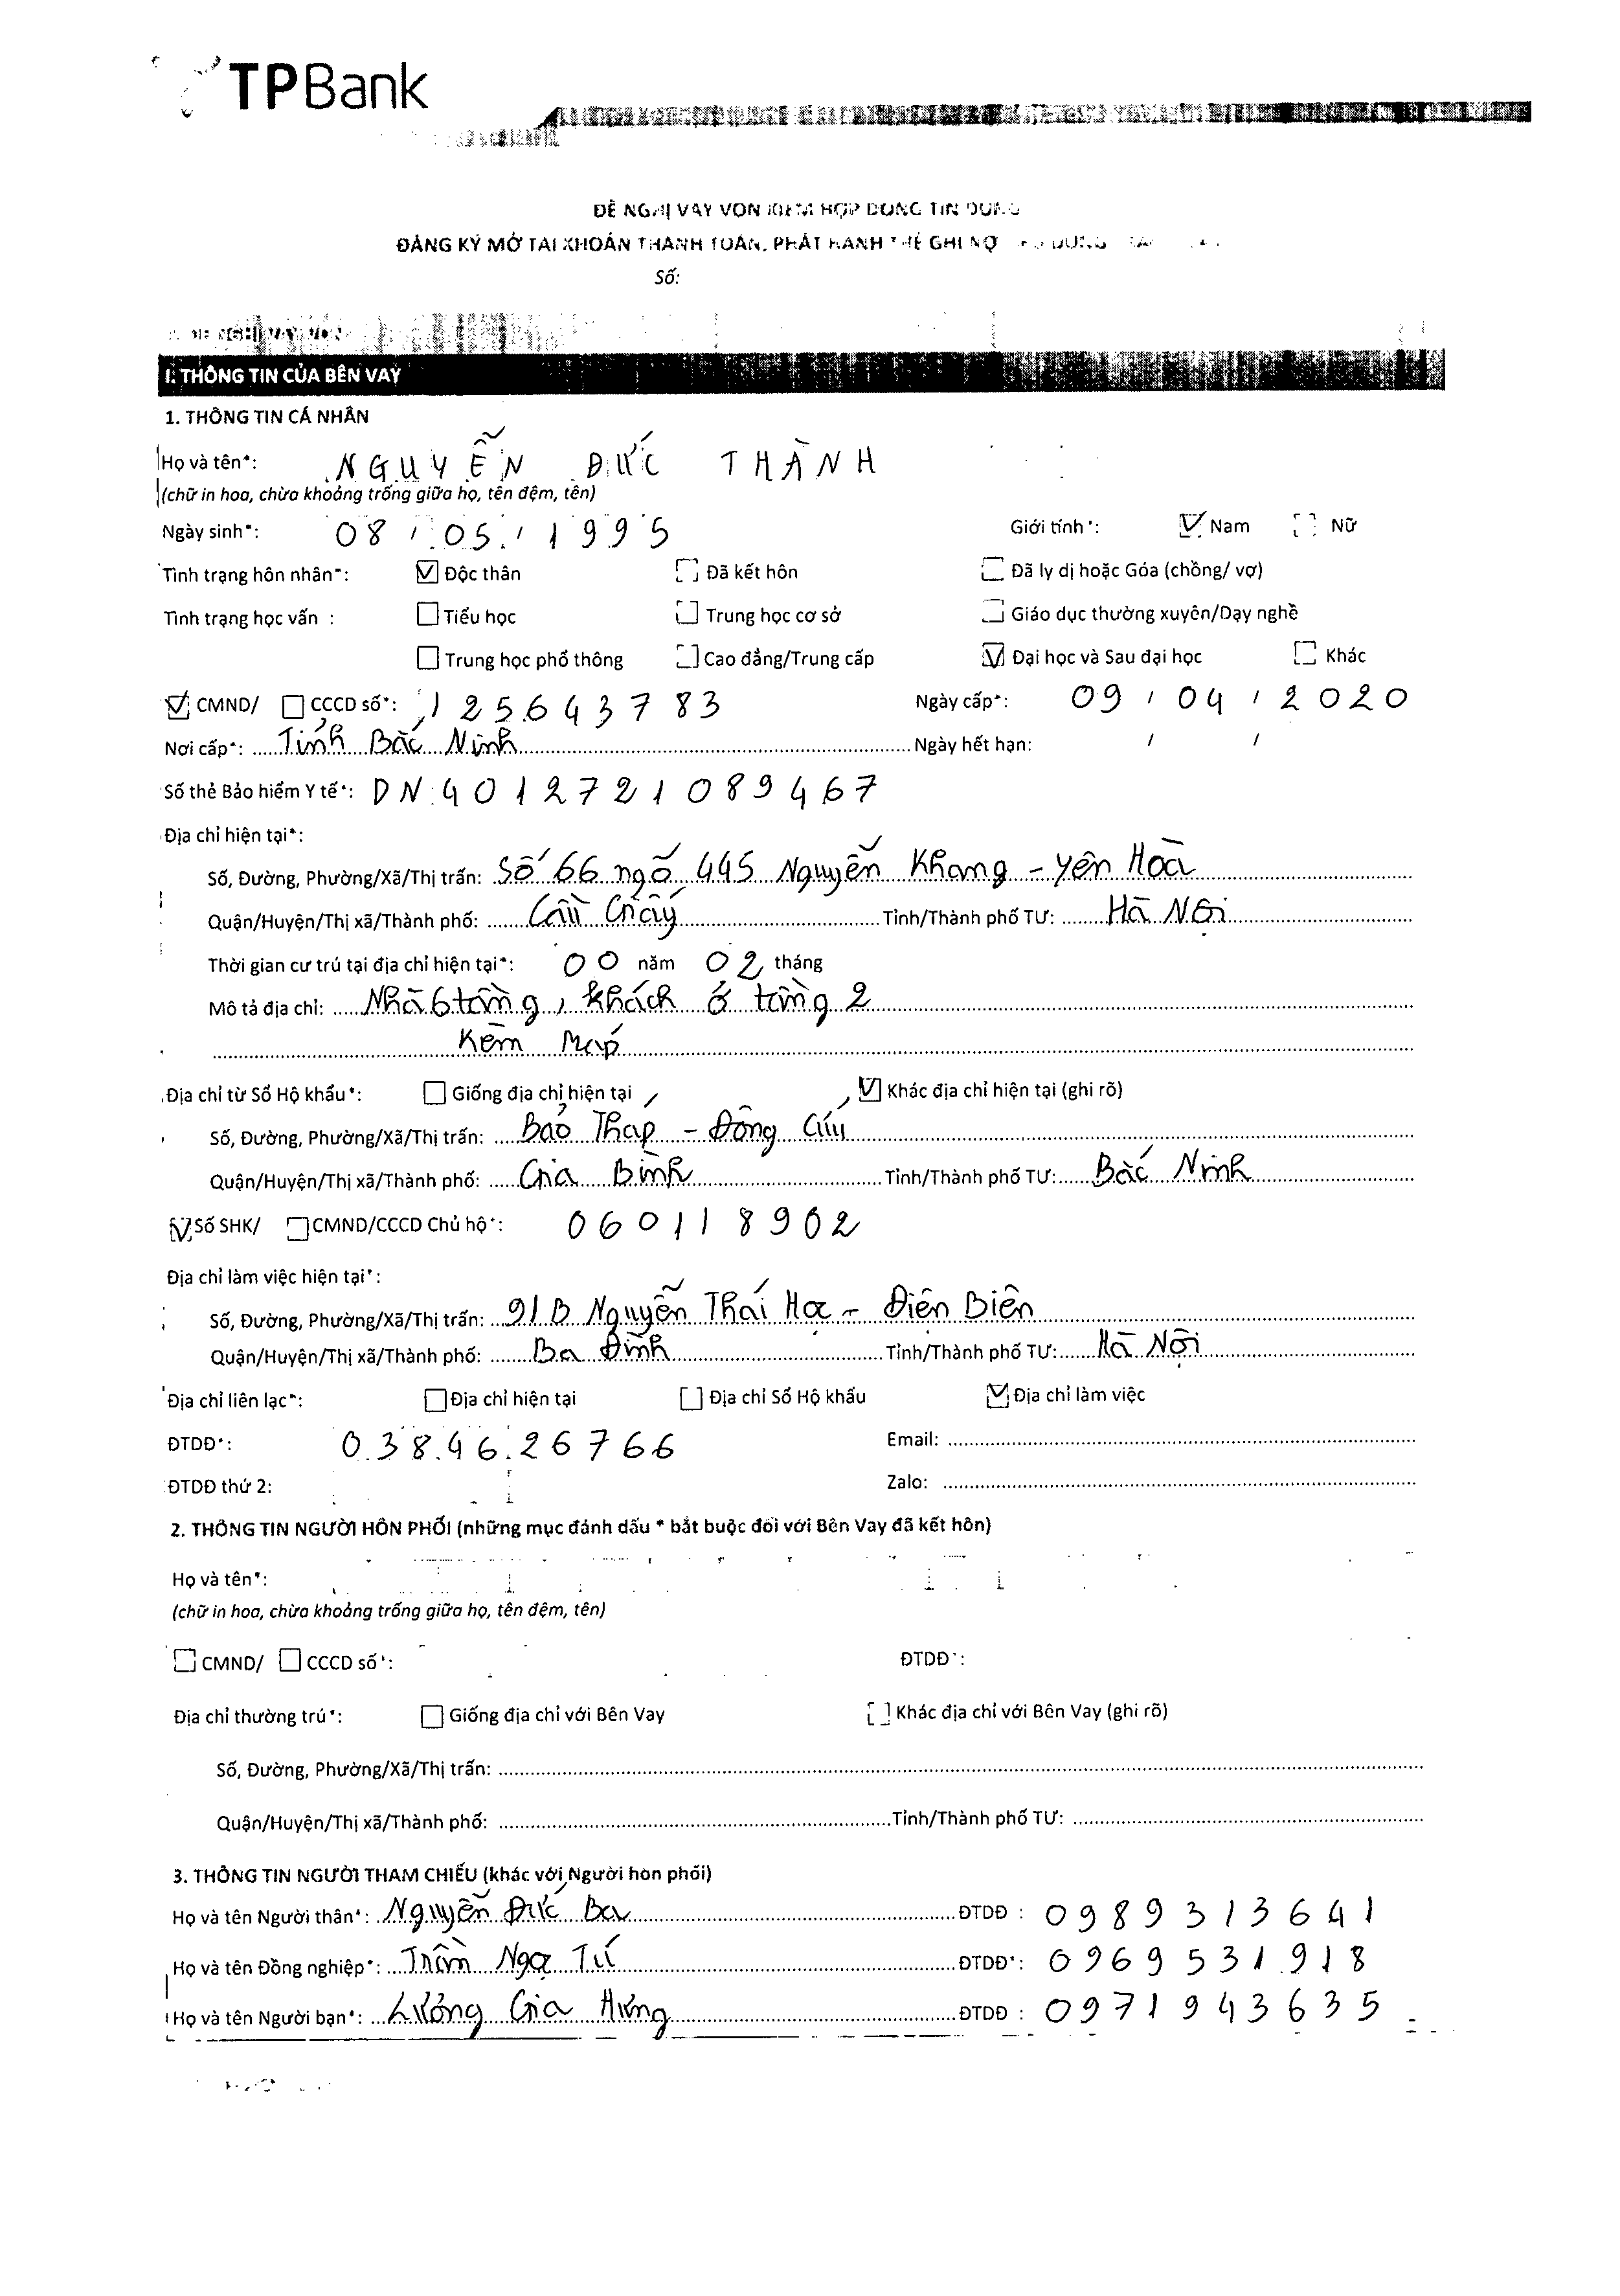 TPBank
ĐỀ NGHỊ VAY VỐN KIÊM HỢP ĐỒNG TÍN DỤNG
ĐĂNG KÝ MỞ TÀI KHOẢN THANH TOÁN, PHÁT HÀNH THẺ GHI NỢ
Số:
ĐỀ NGHỊ VAY VỐN
I. THÔNG TIN CỦA BÊN VAY
1. THÔNG TIN CÁ NHÂN
Họ và tên*: NGUYỄN ĐỨC THÀNH
(chữ in hoa, chừa khoảng trống giữa họ, tên đệm, tên)
Ngày sinh*: 08 / 05 / 1995 Giới tính*: ☑ Nam ☐ Nữ
Tình trạng hôn nhân*: ☑ Độc thân ☐ Đã kết hôn ☐ Đã ly dị hoặc Góa (chồng/ vợ)
Tình trạng học vấn : ☐ Tiểu học ☐ Trung học cơ sở ☐ Giáo dục thường xuyên/Dạy nghề
☐ Trung học phổ thông ☐ Cao đẳng/Trung cấp ☑ Đại học và Sau đại học ☐ Khác
☑ CMND/ ☐ CCCD số*: 125643783 Ngày cấp*: 09 / 04 / 2020
Nơi cấp*: Tỉnh Bắc Ninh Ngày hết hạn: / /
Số thẻ Bảo hiểm Y tế*: DN4012721089467
Địa chỉ hiện tại*:
Số, Đường, Phường/Xã/Thị trấn: Số 66 ngõ 445 Nguyễn Khang - Yên Hoà
Quận/Huyện/Thị xã/Thành phố: Cầu Giấy Tỉnh/Thành phố TƯ: Hà Nội
Thời gian cư trú tại địa chỉ hiện tại*: 00 năm 02 tháng
Mô tả địa chỉ: Nhà 6 tầng, khách ở tầng 2
Kèm Map
Địa chỉ từ Sổ Hộ khẩu*: ☐ Giống địa chỉ hiện tại ☑ Khác địa chỉ hiện tại (ghi rõ)
Số, Đường, Phường/Xã/Thị trấn: Bảo Tháp - Đông Cứu
Quận/Huyện/Thị xã/Thành phố: Gia Bình Tỉnh/Thành phố TƯ: Bắc Ninh
☑ Số SHK/ ☐ CMND/CCCD Chủ hộ*: 060118902
Địa chỉ làm việc hiện tại*:
Số, Đường, Phường/Xã/Thị trấn: 91B Nguyễn Thái Học - Điện Biên
Quận/Huyện/Thị xã/Thành phố: Ba Đình Tỉnh/Thành phố TƯ: Hà Nội
Địa chỉ liên lạc*: ☐ Địa chỉ hiện tại ☐ Địa chỉ Sổ Hộ khẩu ☑ Địa chỉ làm việc
ĐTDĐ*: 0384626766 Email:
ĐTDĐ thứ 2: Zalo:
2. THÔNG TIN NGƯỜI HÔN PHỐI (những mục đánh dấu * bắt buộc đối với Bên Vay đã kết hôn)
Họ và tên*:
(chữ in hoa, chừa khoảng trống giữa họ, tên đệm, tên)
☐ CMND/ ☐ CCCD số*: ĐTDĐ*:
Địa chỉ thường trú*: ☐ Giống địa chỉ với Bên Vay ☐ Khác địa chỉ với Bên Vay (ghi rõ)
Số, Đường, Phường/Xã/Thị trấn:
Quận/Huyện/Thị xã/Thành phố: Tỉnh/Thành phố TƯ:
3. THÔNG TIN NGƯỜI THAM CHIẾU (khác với Người hôn phối)
Họ và tên Người thân*: Nguyễn Đức Ba ĐTDĐ : 0989313641
Họ và tên Đồng nghiệp*: Trần Ngọc Tú ĐTDĐ*: 0969531918
Họ và tên Người bạn*: Lương Gia Hưng ĐTDĐ : 0971943635